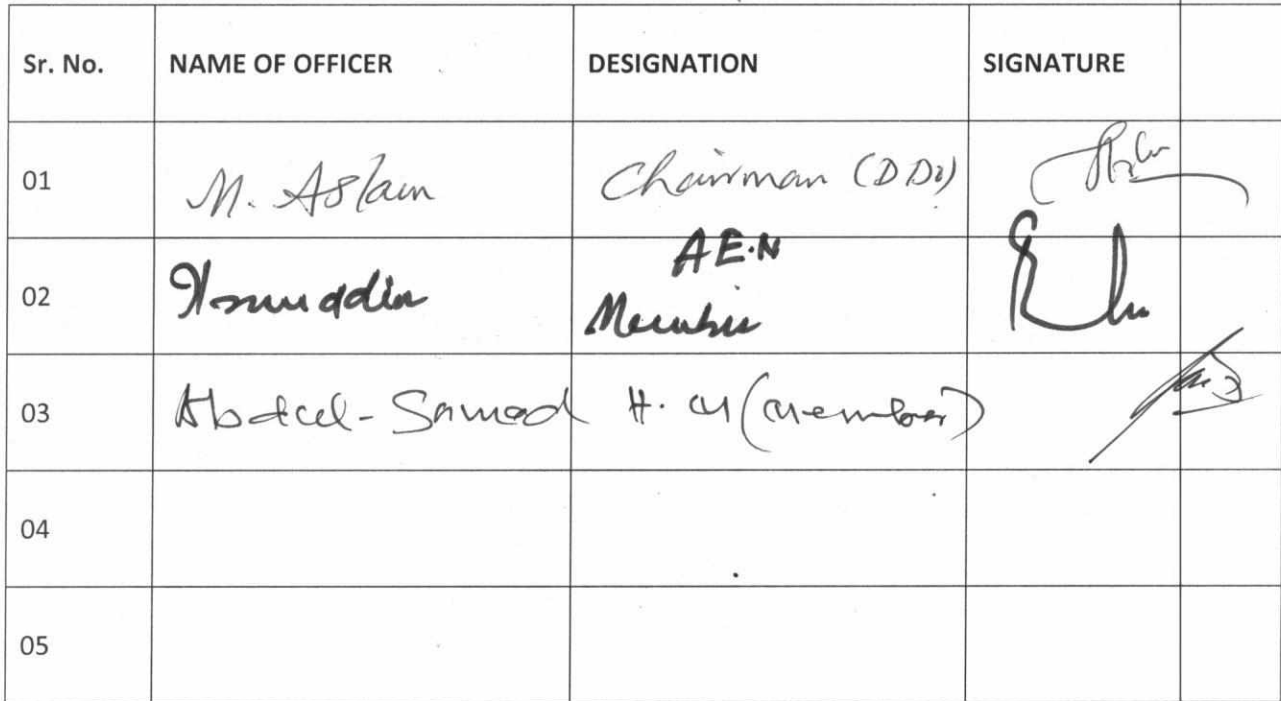 Sr. No. NAME OF OFFICER DESIGNATION SIGNATURE
01 M. Aslam Chairman (DDO)
A E.N
02 Member
03 Abdul-Samad H. M (Member)
04
05